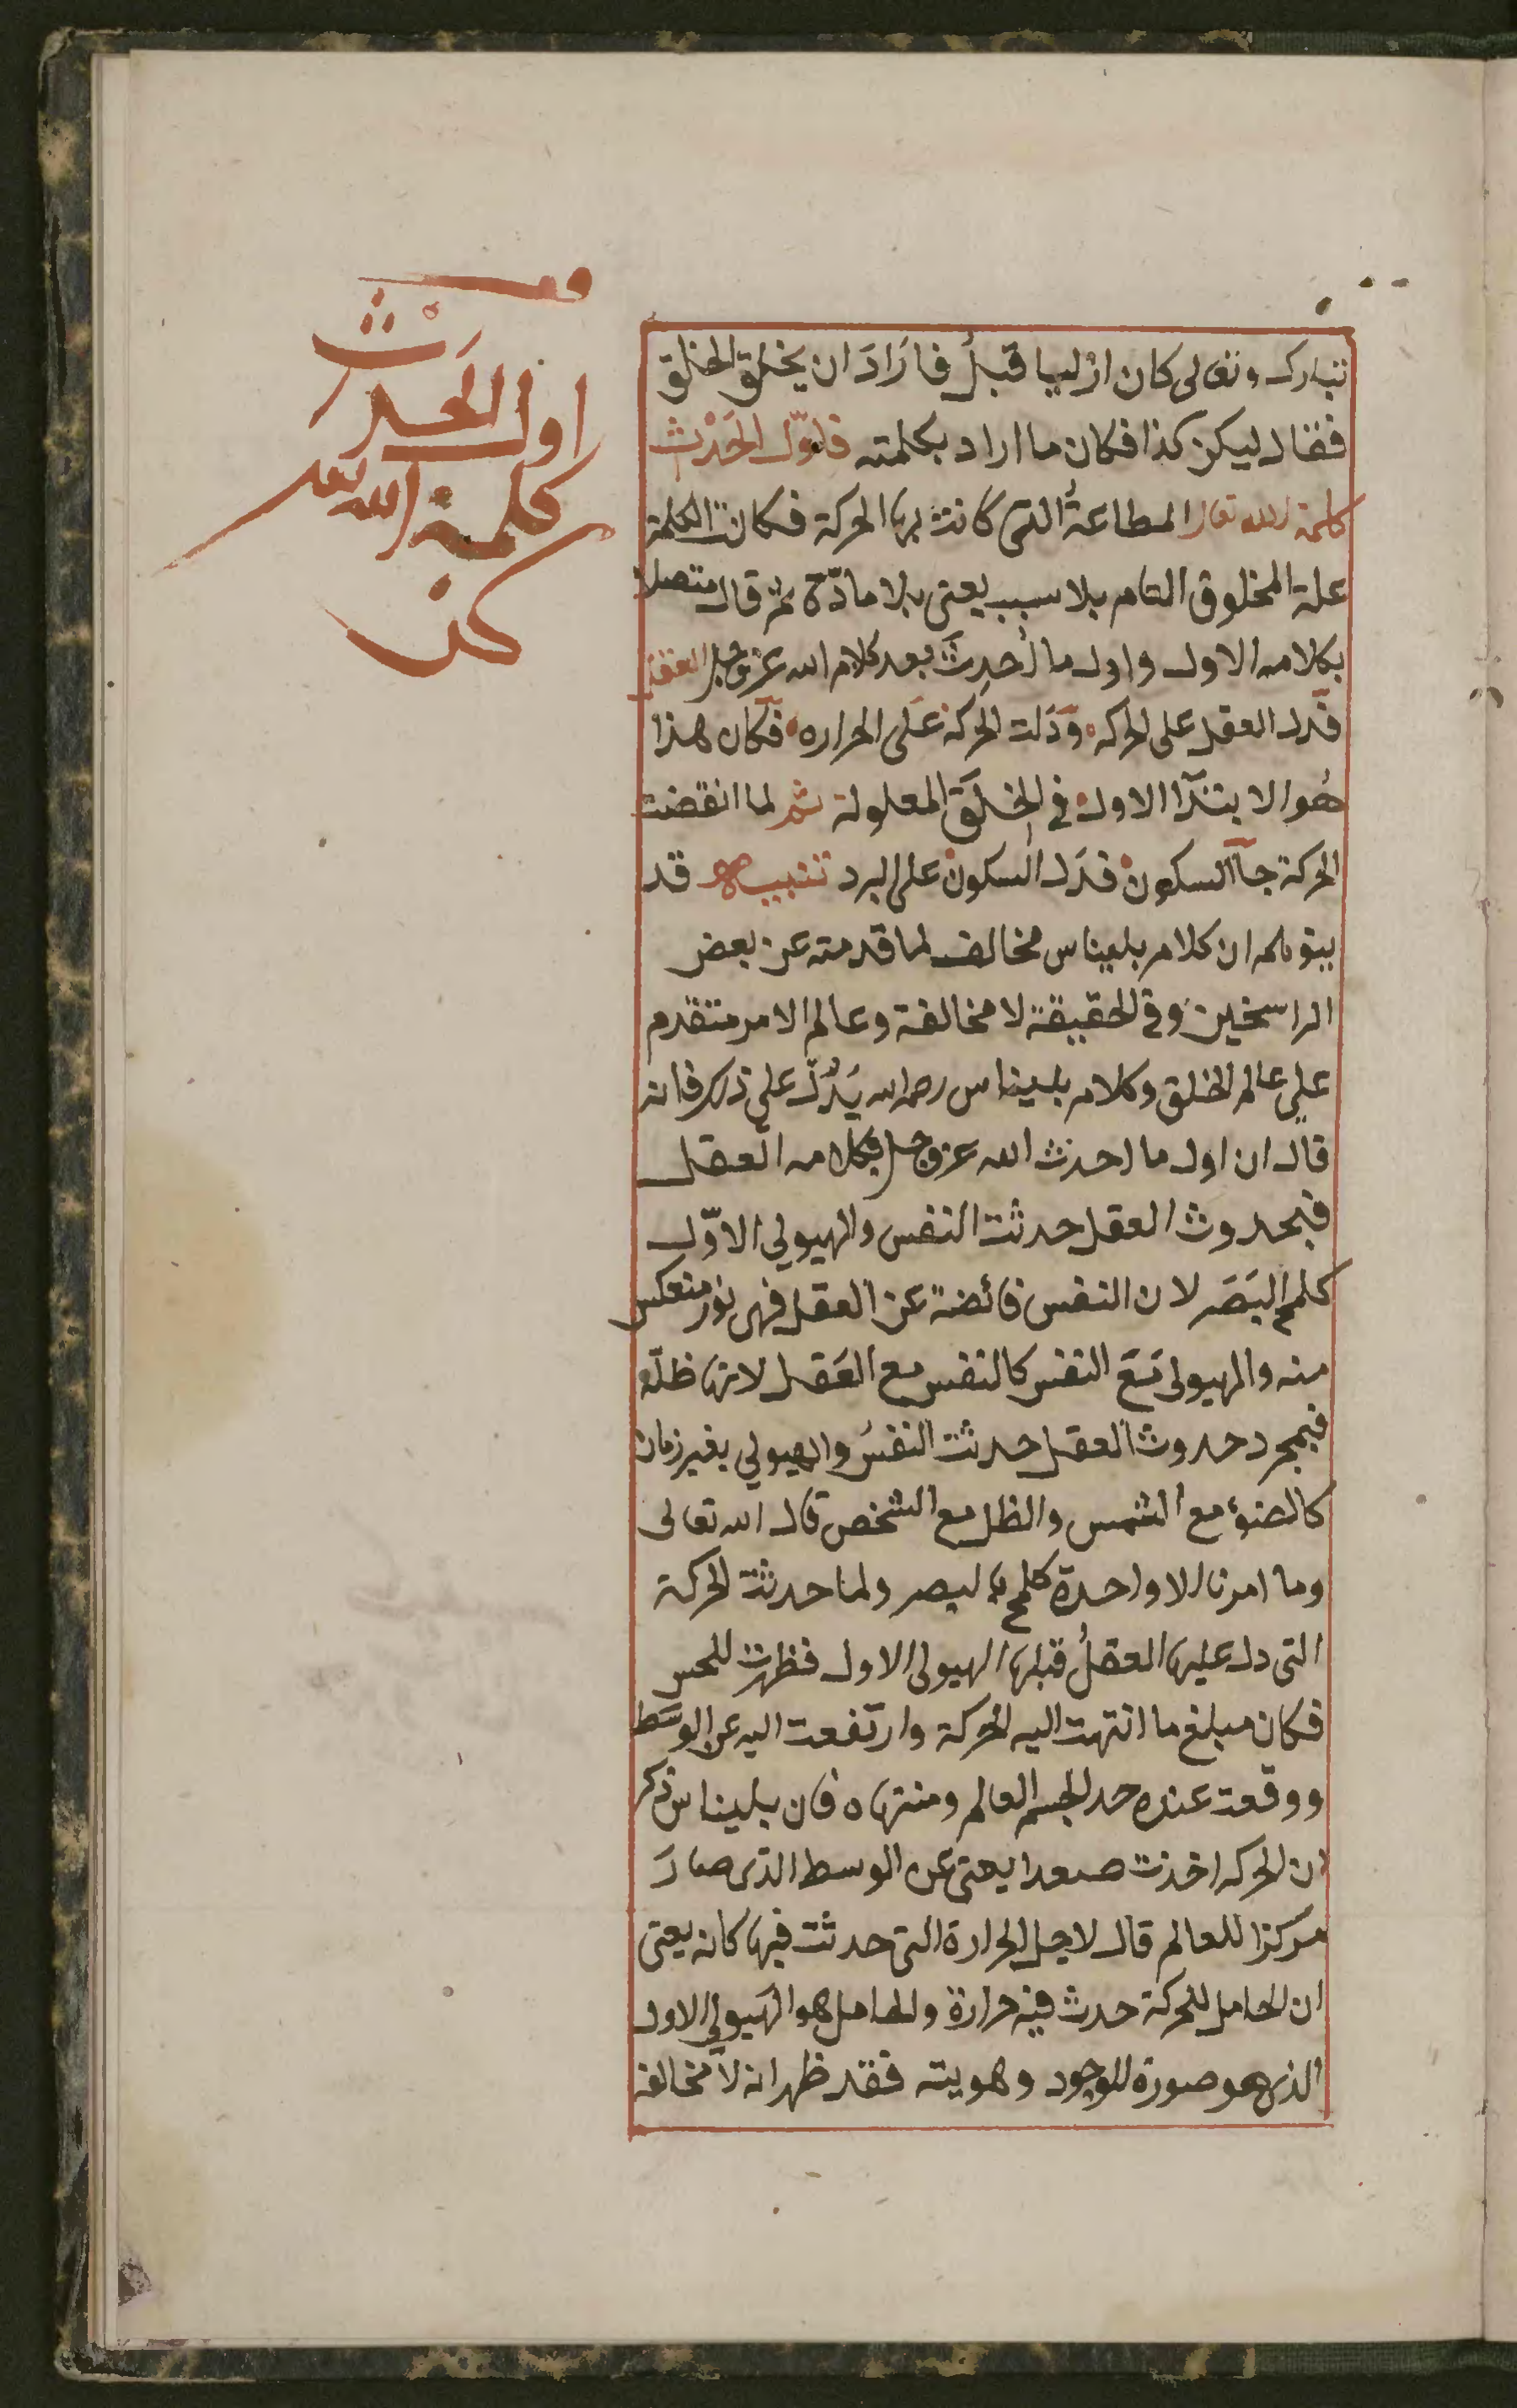 تبارك وتعالى كان ازليا قبلُ فارَادَ ان يخلق الخلق
فقال ليكن كذا فكان ما اراد بكلمته فاوّل الحَدْث
كلمة الله تعالى المطاعةُ التى كانت بها الحركة فكانت الكلمة
علة المخلوق التام بلا سبب يعنى بلا مادّة ثم قال متصلا
بكلامه الاول واول ما اُحدِثَ بعد كلام الله عز وجل العقل
فدل العقل على الحركه ودَلت الحركة عَلى الحراره فكان هذا
هُو الابتدآ الاول فى الخلق المعلولة ثم لما انقضت
الحركة جآ السكون فدَل السكون على البرد تنبيه قد
يتوهم ان كلام بليناس مخالف لما قدمته عن بعض
الراسخين وفى الحقيقة لا مخالفة وعالم الامر متقدم
على عالم الخلق وكلام بليناس رحمه الله يَدُلّ على ذلك فانه
قال ان اول ما احدث الله عز وجل بكلامه العقل
فبحدوث العقل حدثت النفس والهيولى الاوّل
كلمح البَصَر لان النفس فائضة عن العقل فهى نور منعكس
منه والهيولى مَعَ النفس كالنفس مع العَقل لانها ظلّه
فبمجرد حدوث العقل حدثت النفسُ والهيولي بغير زمان
كالضوء مع الشمس والظل مع الشخص قال الله تعالى
وما امرنا الا واحدة كلمح بالبصر ولما حدثت الحركة
التى دل عليها العقلُ قبلها الهيولى الاول فظهرت للحس
فكان مبلغ ما انتهت اليه الحركة وارتفعت اليه عن الوسَط
ووقعت عنده حد الجسم العالم ومنتهاه فان بليناس ذكر
ان الحركه اخذت صعدا يعنى عن الوسط الذى صارَ
مركزا للعالم قال لاجل الحرارة التى حدثت فيها كانه يعنى
ان الحامل للحركة حدث فيه حرارة والحامل هو الهيولي الاول
الذى هو صورة للوجود وهويته فقد ظهر انه لا مخالفة
قف
اول الحَدْث
كلمة الله تعالى
كن